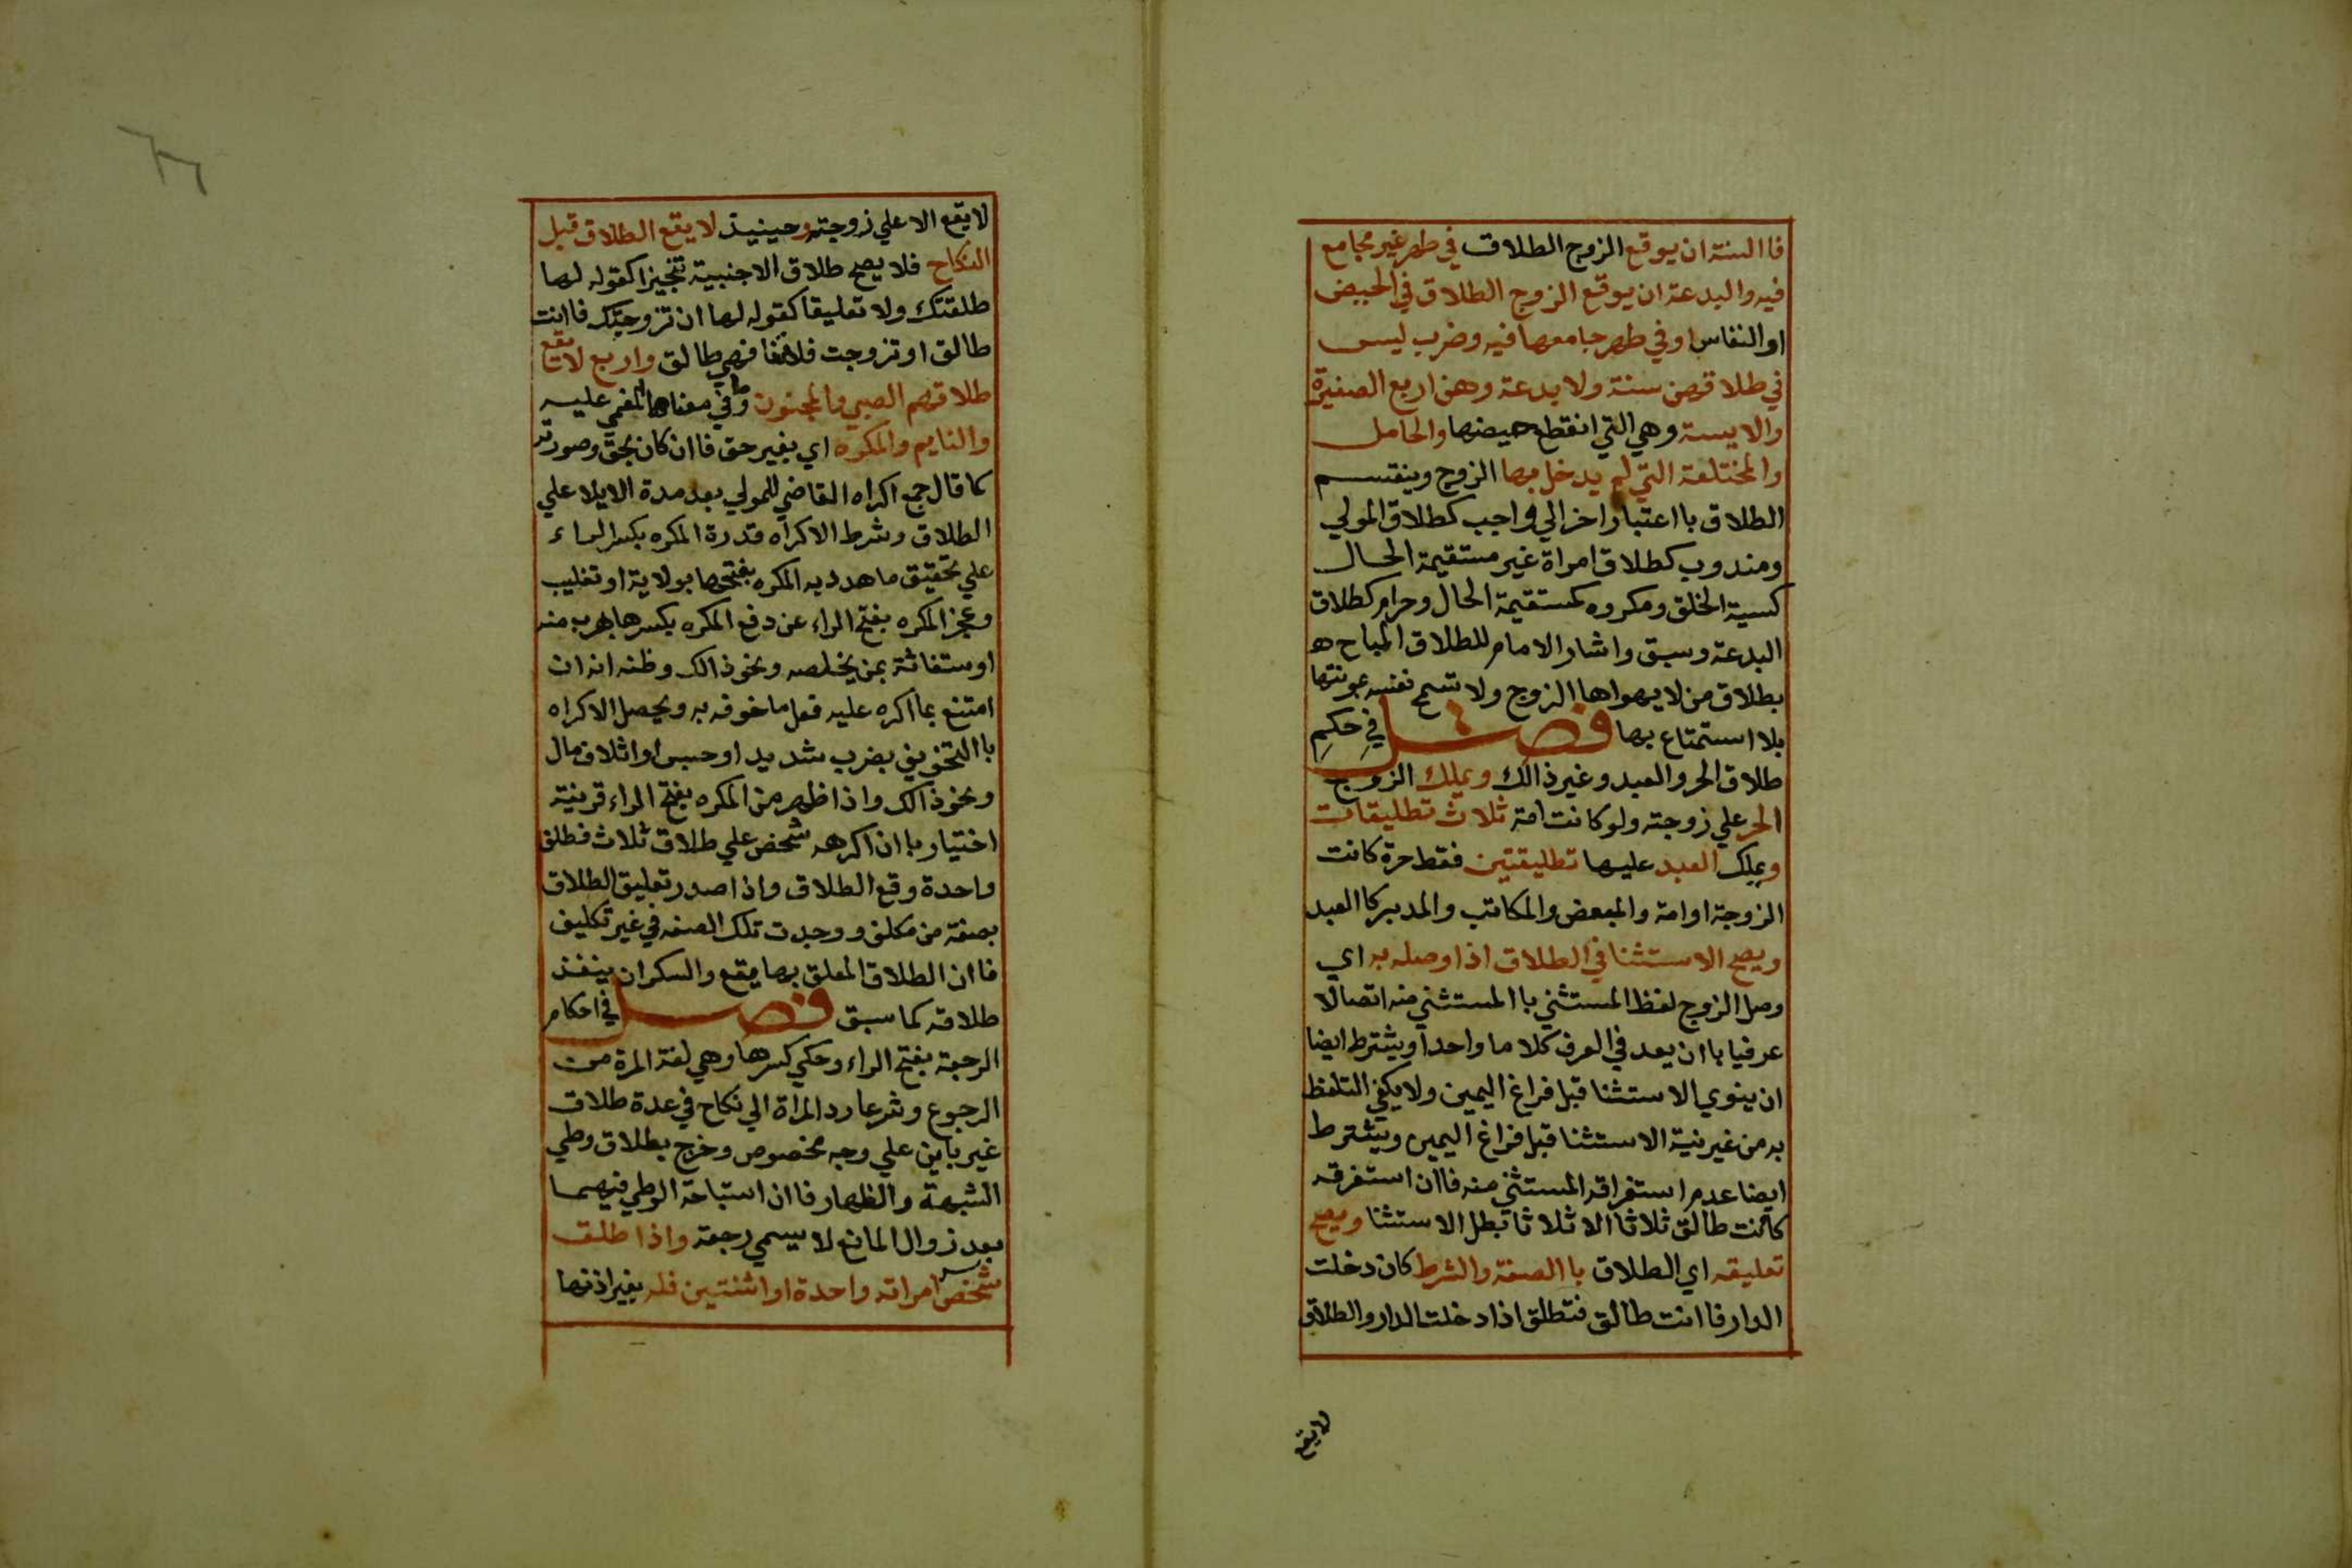 فاالسنة ان يوقع الزوج الطلاق في طهر غير مجامع
فيه والبدعة ان يوقع الزوج الطلاق في الحيض
او النفاس او في طهر جامعها فيه وضرب ليس
في طلاقهن سنة ولا بدعة وهن اربع الصغيرة
والايسة وهي التي انقطع حيضها والحامل
والمختلعة التي لم يدخل بها الزوج وينقسم
الطلاق بااعتبار اخر الي واجب كطلاق المولي
ومندوب كطلاق امراة غير مستقيمة الحال
كسية الخلق ومكروه كمستقيمة الحال وحرام كطلاق
البدعة وسبق واشار الامام للطلاق المباح ه
بطلاق من لا يهواها الزوج ولا تسمح نفسه بمونتها
بلا استمتاع بها فصل في حكم
طلاق الحر والعبد وغير ذالك ويملك الزوج
الحر علي زوجته ولو كانت امة ثلاث تطليقات
ويملك العبد عليها تطليقتين فقط حرة كانت
الزوجة او امة والمبعض والمكاتب والمدبر كاالعبد
ويصح الاستثنا في الطلاق اذا وصله به اي
وصل الزوج لفظ المستثني باالمستثني منه اتصالا
عرفيا باان يعد في العرف كلاما واحدا ويشترط ايضا
ان ينوي الاستثنا قبل فراغ اليمين ولا يكفي التلفظ
به من غير نية الاستثنا قبل فراغ اليمين ويشترط
ايضا عدم استغراقه المستثني منه فاان استغرقه
كاانت طالق ثلاثا الا ثلاثا بطل الاستثنا ويصح
تعليقه اي الطلاق باالصفة والشرط كان دخلت
الدار فاانت طالق فتطلق اذا دخلت الدار والطلاق
لا يقع
لا يقع الا علي زوجته وحينيذ لا يقع الطلاق قبل
النكاح فلا يصح طلاق الاجنبية تنجيزا كقوله لها
طلقتك ولا تعليقا كقوله لها ان تزوجتك فاانت
طالق او تزوجت فلانة فهي طالق واربع لا يقع
طلاقهم الصبي والمجنون وفي معناهما المغمي عليه
والنايم والمكره اي بغير حق فاان كان بحق وصورته
كما قال جمع اكراه القاضي للمولي بعد مدة الايلا علي
الطلاق وشرط الاكراه قدرة المكره بكسر الراء
علي تحقيق ما هدد به المكره بفتحها بولاية او تغليب
وعجز المكره بفتح الراء عن دفع المكره بكسرها بهرب منه
او ستغاثة بمن يخلصه ونحو ذالك وظنه انه ان
امتنع مما اكره عليه فعل ما خوفه به ويحصل الاكراه
باالتخويف بضرب شديد او حبس او اتلاف مال
ونحو ذالك واذا ظهر من المكره بفتح الراء قرينة
اختيار باان اكرهه شخص علي طلاق ثلاث فطلق
واحدة وقع الطلاق واذا صدر تعليق الطلاق
بصفة من مكلف ووجدت تلك الصفه في غير تكليف
فاان الطلاق المعلق بها يقع والسكران ينفذ
طلاقه كما سبق فصل في احكام
الرجعة بفتح الراء وحكي كسرها وهي لغة المرة من
الرجوع وشرعا رد المراة الي نكاح في عدة طلاق
غير باين علي وجه مخصوص وخرج بطلاق وطي
الشبهة والظهار فاان استباحة الوطي فيهما
بعد زوال المانع لا يسمي رجعة واذا طلق
شخص امراته واحدة او اثنتين فله بغير اذنها